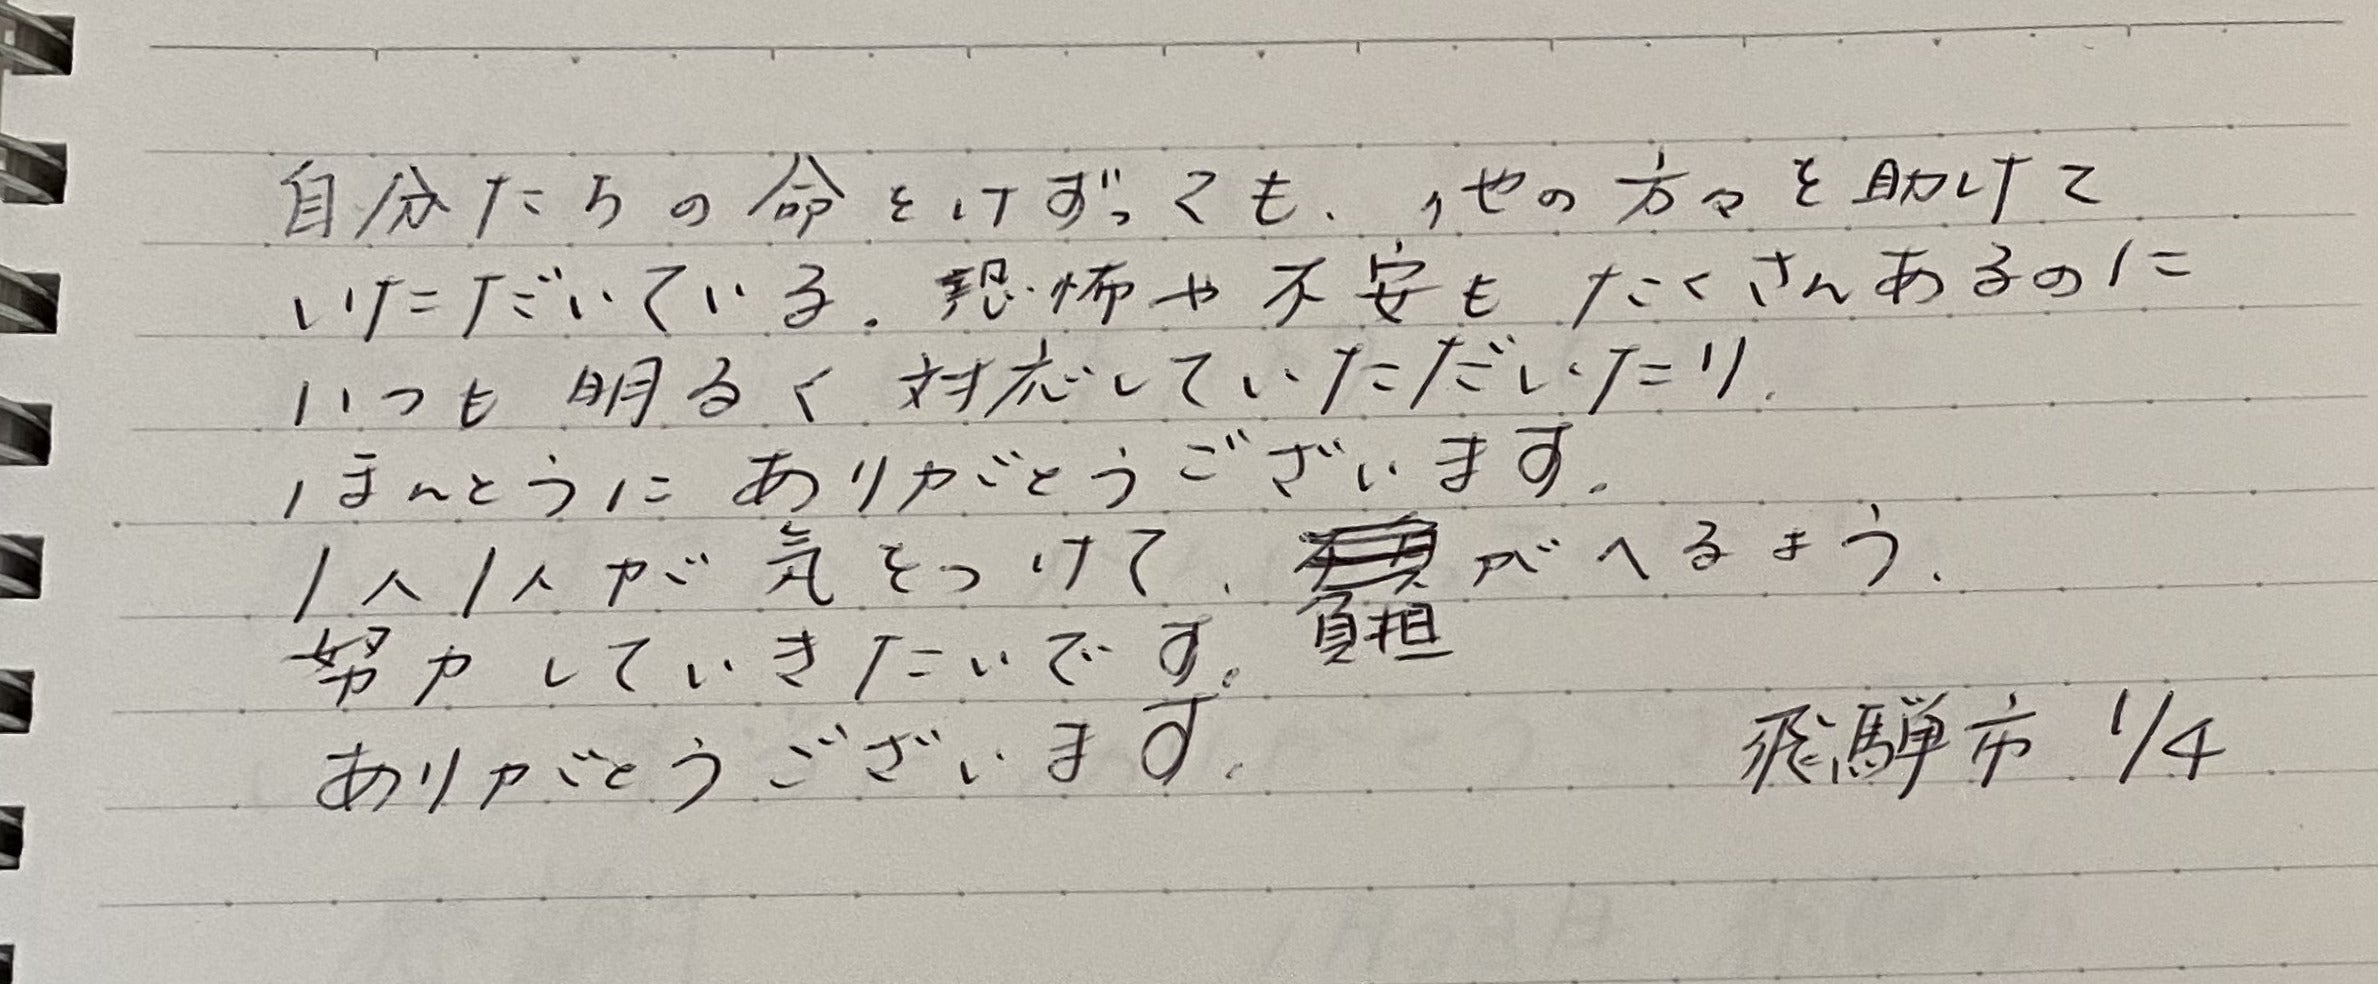 自分たちの命をけずっても、他の方々を助けて
いただいている。恐怖や不安もたくさんあるのに
いつも明るく対応していただいたり、
ほんとうにありがとうございます。
1人1人が気をつけて、負担がへるよう、
努力していきたいです。
ありがとうございます。
飛騨市 1/4